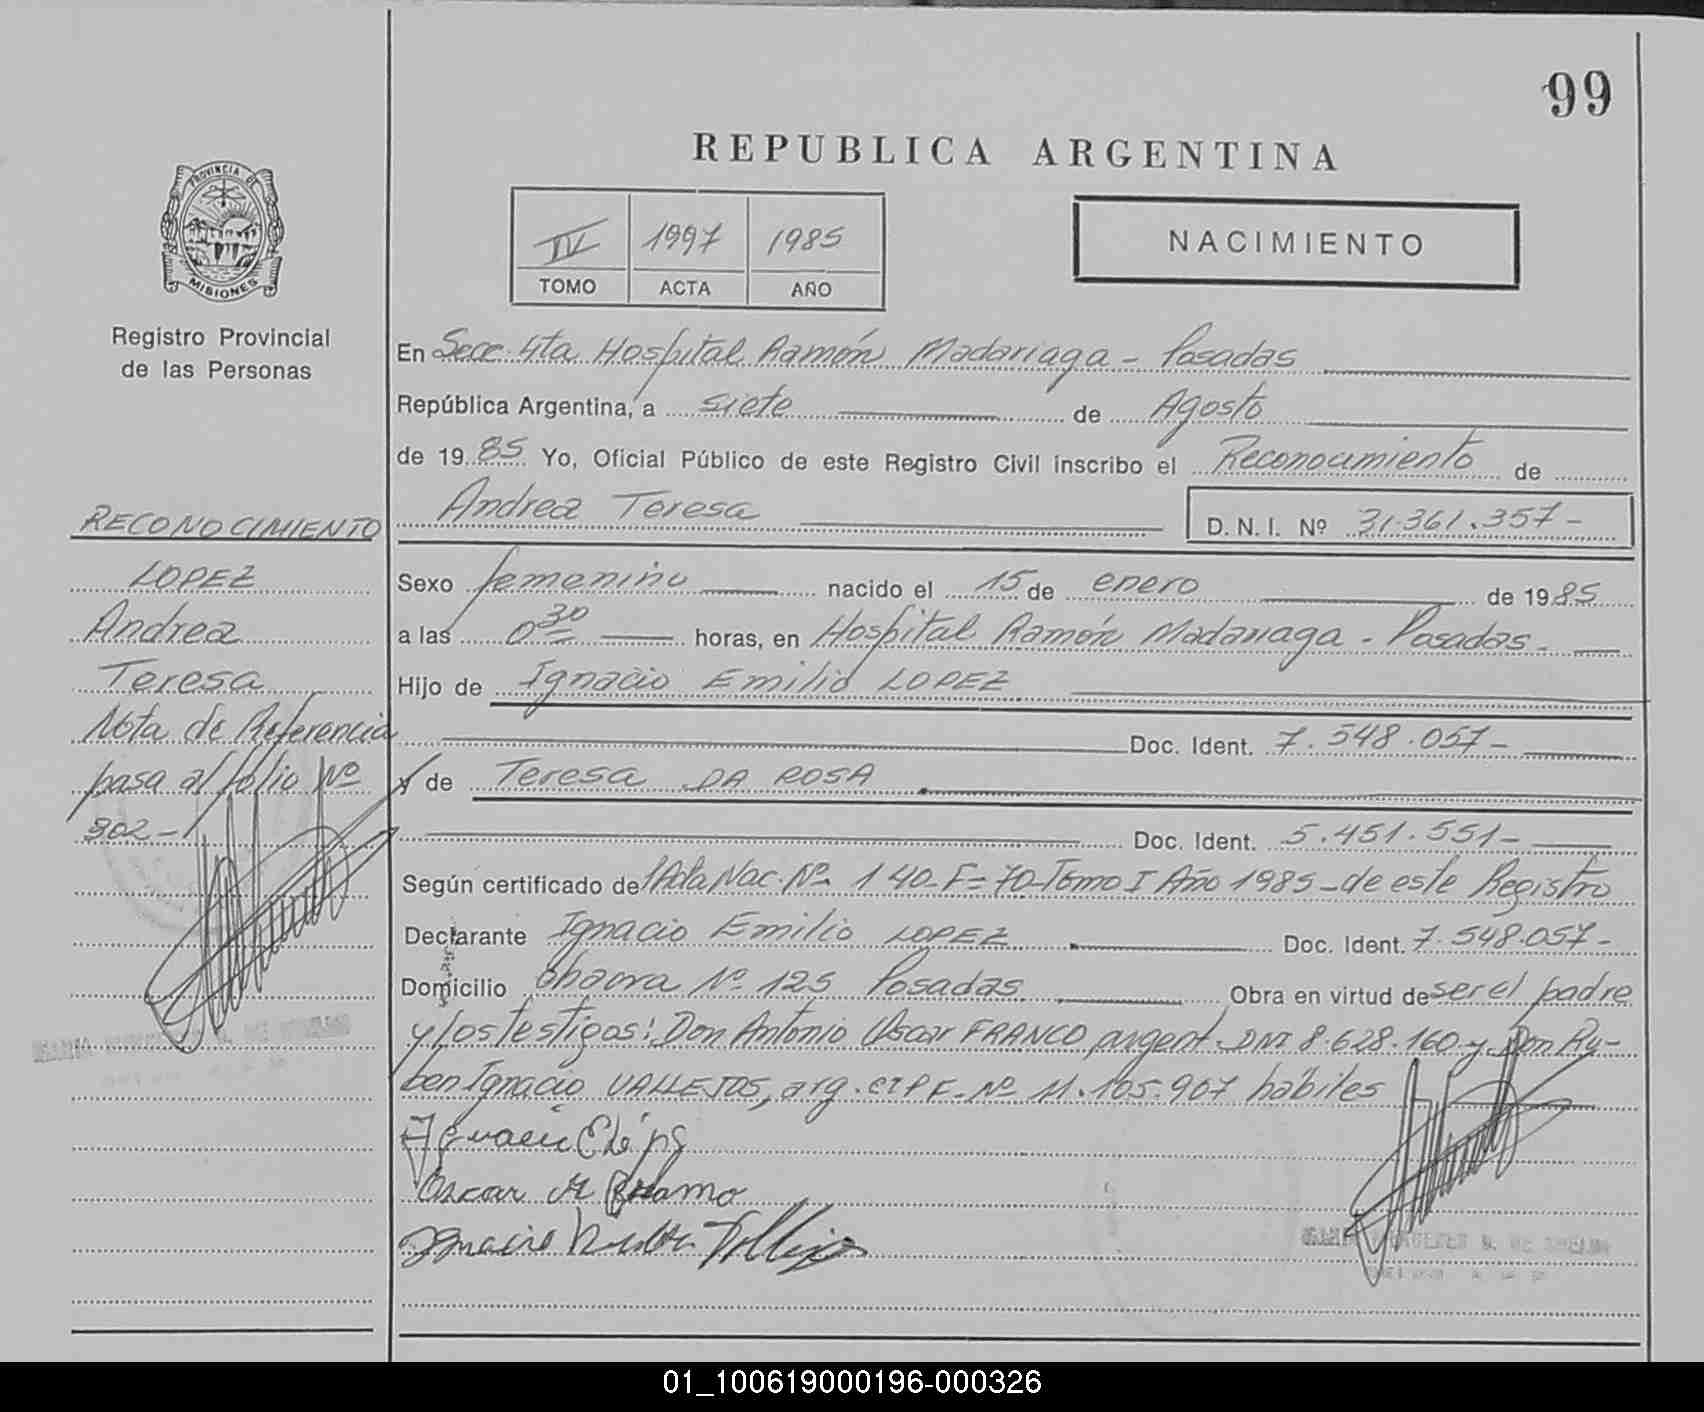 99
REPUBLICA ARGENTINA
PROVINCIA DE
MISIONES
Registro Provincial
de las Personas
IV 1997 1985
TOMO ACTA AÑO
NACIMIENTO
En Secc. 4ta Hospital Ramón Madariaga - Posadas
República Argentina, a siete de Agosto
de 1985 Yo, Oficial Público de este Registro Civil inscribo el Reconocimiento de
Andrea Teresa D.N.I. Nº 31.361.357-
Sexo femenino nacido el 15 de enero de 1985
a las 0 30 horas, en Hospital Ramón Madariaga - Posadas.
Hijo de Ignacio Emilio LOPEZ
Doc. Ident. 7.548.057-
y de Teresa DA ROSA
Doc. Ident. 5.451.551-
Según certificado de Acta Nac. Nº 140-F=70-Tomo I Año 1985-de este Registro
Declarante Ignacio Emilio LOPEZ Doc. Ident. 7.548.057-
Domicilio Chacra Nº 125 Posadas Obra en virtud de ser el padre
y los testigos: Don Antonio Oscar FRANCO argent. DNI 8.628.160 y Don Ru-
ben Ignacio VALLEJOS, arg. CIPF. Nº 11.105.907 hábiles
RECONOCIMIENTO
LOPEZ
Andrea
Teresa
Nota de Referencia
pasa al folio Nº
302-
01_100619000196-000326